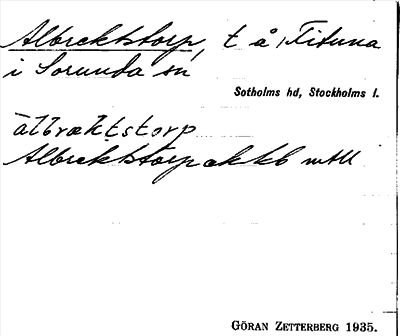 Albrektstorp, t å, Fituna
i Sorunda sn
Sotholms hd, Stockholms l.
albrahtstorp
Albrektstorp
GÖRAN ZETTERBERG 1935.